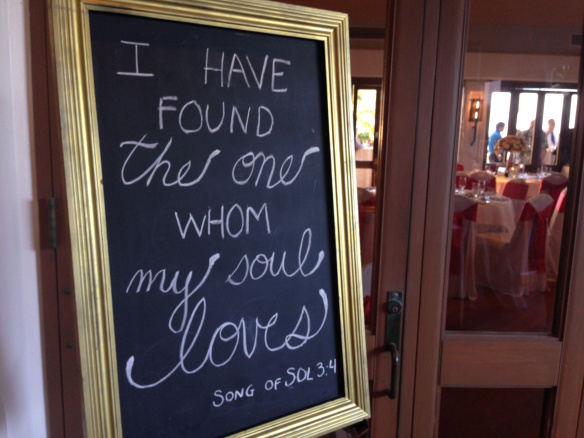 I HAVE
FOUND
the one
WHOM
my soul
loves
SONG OF SOL 3:4